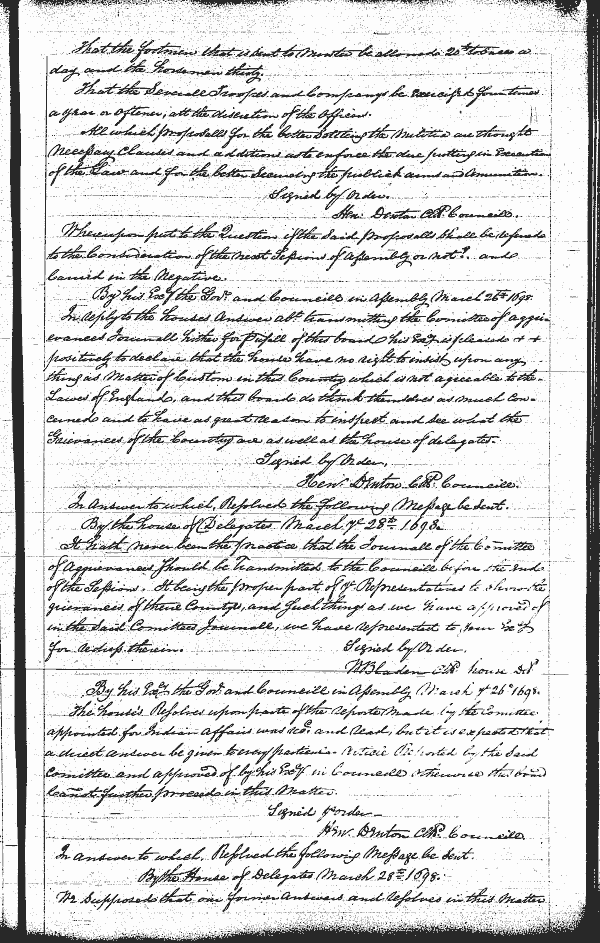 That the footmen that is sent to Muster be allowed 20lb tobacco a
day and the horsemen thirty.
That the Severall Troopes and Companys be Exercised four times
a year or oftener, att the discretion of the Officers.
All which proposalls for the better Settling the Militia are thought
necessary Clauses and additions as to enforce the due putting in Execution
of the Law and for the better Secureing the publick arms and Amunition.
Signed by Order.
Hen: Denton Clk Councill.
Whereupon put to the Question if the said proposalls shall be referred
to the Consideration of the next Session of Assembly or not? and
Carried in the Negative.
By his Excy the Govr and Councill in Assembly March 26th 1698.
In reply to the houses Answer abt transmitting the Comittee of aggri-
evances Journall hither for perusall of this board his Excy is pleased + +
positively to declare that the house have no right to insist upon any
thing as Matter of Custom in this Country which is not agreeable to the
Lawes of England, and this board do think themselves as much Con-
cerned and to have as great reason to inspect and see what the
Grievances of the Country are as well as the house of delegates.
Signed by Order,
Hen: Denton Clk Councill.
In Answer to which, Resolved the following Message be sent.
By the house of Delegates March ye 28th 1698.
It hath never been the practice that the Journall of the Comittee
of Aggrievances should be transmitted to the Councill before the end
of the Sessions. It being the proper part of ye Representatives to shew the
grievances of there Countys, and such things as we have approved of
in the said Comittees Journall, we have represented to your Excy
for redress therein.
Signed by Order.
W Bladen Clk house Del
By his Excy the Govr and Councill in Assembly March ye 26th 1698.
The houses Resolves upon parte of the reporte Made by the Comittee
appointed for Indian Affairs was red and read, but it is expected that
a direct answer be given to every particular Article Reported by the said
Comittee and approved of by his Excy in Councill otherwise this board
cannot further proceed in this Matter.
Signed p order
Hen: Denton Clk Councill
In answer to which, Resolved the following Message be sent.
By the House of Delegates March 28th 1698.
We Supposed that our former Answers and resolves in this Matter